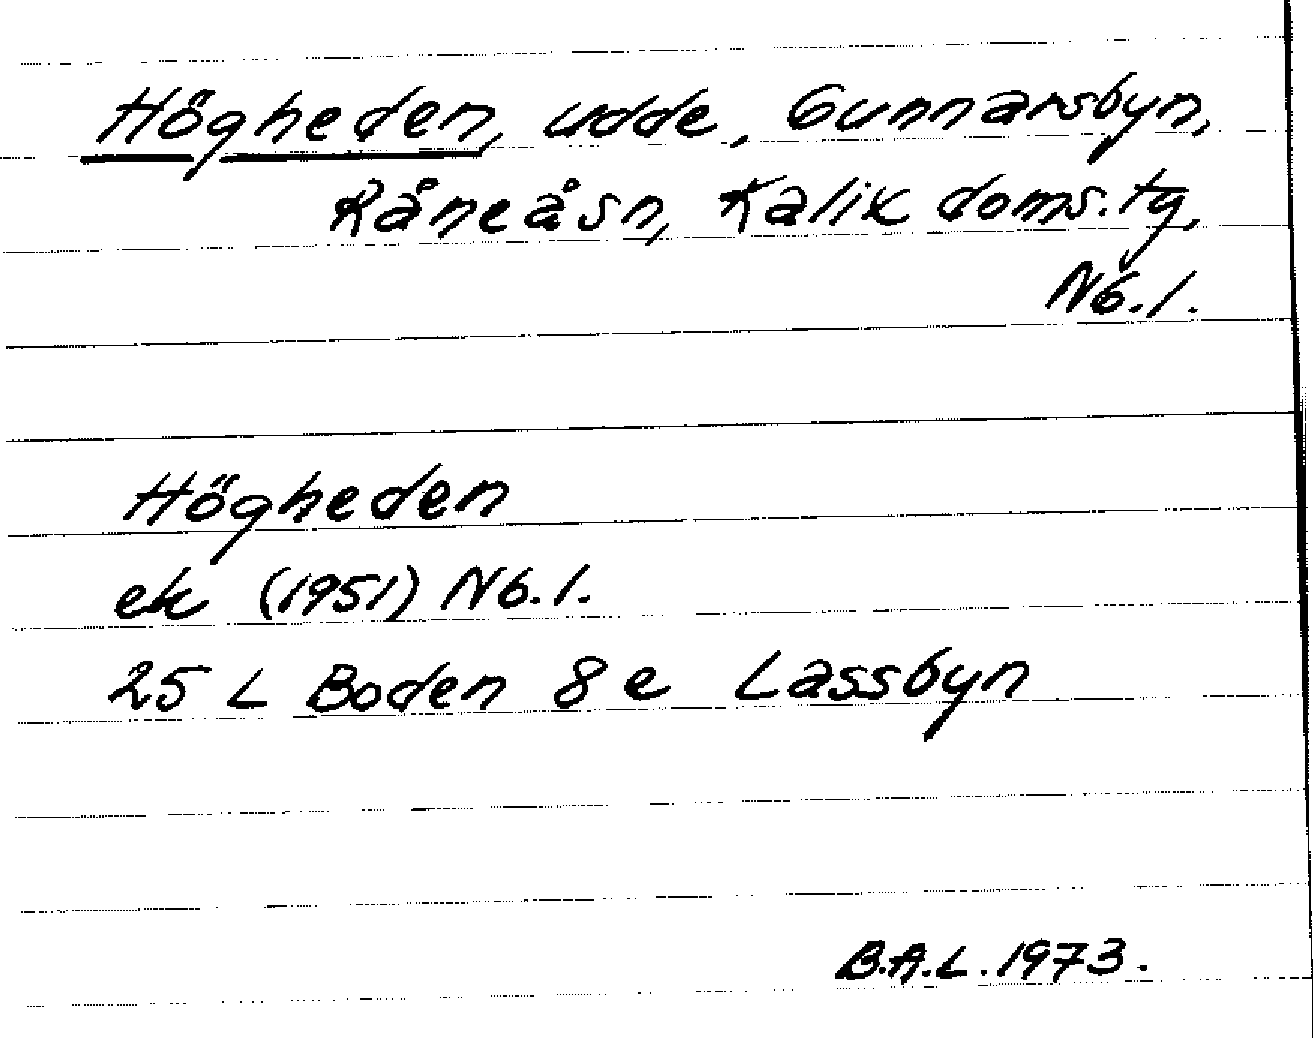 Högheden, udde, Gunnarsbyn,
Råneåsn, Kalix doms.tg,
Nb.l.
Högheden
ek (1951) Nb.l.
25 L Boden 8e Lassbyn
B.A.L. 1973.